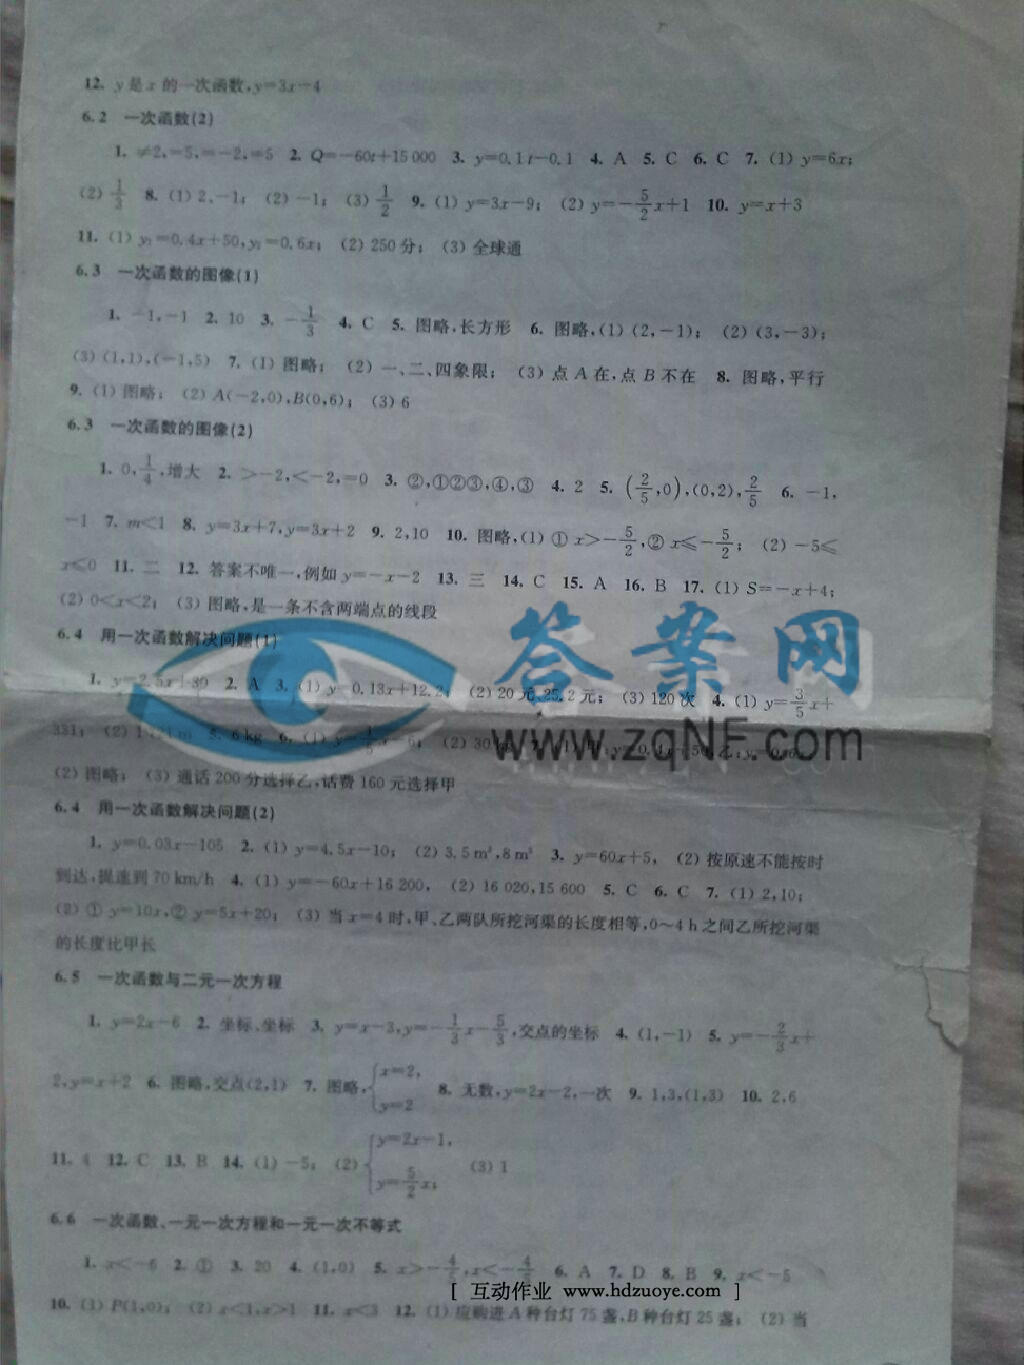 12. y是x的一次函数,y=3x-4
6.2 一次函数(2)
1. ≠2,=5,=-2,=5 2. Q=-60t+15 000 3. y=0.1t-0.1 4. A 5. C 6. C 7. (1) y=6x;
(2) 1/3 8. (1) 2,-1; (2) -1; (3) 1/2 9. (1) y=3x-9; (2) y=-5/2x+1 10. y=x+3
11. (1) y₁=0.4x+50,y₂=0.6x; (2) 250分; (3) 全球通
6.3 一次函数的图像(1)
1. -1,-1 2. 10 3. -1/3 4. C 5. 图略,长方形 6. 图略,(1) (2,-1); (2) (3,-3);
(3) (1,1),(-1,5) 7. (1) 图略; (2) 一、二、四象限; (3) 点A在,点B不在 8. 图略,平行
9. (1) 图略; (2) A(-2,0),B(0,6); (3) 6
6.3 一次函数的图像(2)
1. 0,1/4,增大 2. >-2,<-2,=0 3. ②,①②③,④,③ 4. 2 5. (2/5,0),(0,2),2/5 6. -1,
-1 7. m<1 8. y=3x+7,y=3x+2 9. 2,10 10. 图略,(1) ① x>-5/2,② x≤-5/2; (2) -5≤
x≤0 11. 二 12. 答案不唯一,例如y=-x-2 13. 三 14. C 15. A 16. B 17. (1) S=-x+4;
(2) 0<x<2; (3) 图略,是一条不含两端点的线段
6.4 用一次函数解决问题(1)
1. y=2.5x+39 2. A 3. (1) y=0.13x+12.2; (2) 20元,25.2元; (3) 120次 4. (1) y=3/5x+
331; (2) 5. 6 kg 6. (1) (2) 30
(2) 图略; (3) 通话200分选择乙,话费160元选择甲
6.4 用一次函数解决问题(2)
1. y=0.03x-105 2. (1) y=4.5x-10; (2) 3.5 m³,8 m³ 3. y=60x+5, (2) 按原速不能按时
到达,提速到70 km/h 4. (1) y=-60x+16 200, (2) 16 020,15 600 5. C 6. C 7. (1) 2,10;
(2) ① y=10x,② y=5x+20; (3) 当x=4时,甲、乙两队所挖河渠的长度相等,0~4 h之间乙所挖河渠
的长度比甲长
6.5 一次函数与二元一次方程
1. y=2x-6 2. 坐标、坐标 3. y=x-3,y=-1/3x-5/3,交点的坐标 4. (1,-1) 5. y=-2/3x+
2,y=x+2 6. 图略,交点(2,1) 7. 图略,{x=2, y=2 8. 无数,y=2x-2,一次 9. 1,3,(1,3) 10. 2,6
11. 4 12. C 13. B 14. (1) -5; (2) {y=2x-1, y=5/2x; (3) 1
6.6 一次函数、一元一次方程和一元一次不等式
1. x<-6 2. ① 3. 20 4. (1,0) 5. 6. A 7. D 8. B 9. x<-5
10. (1) P(1,0); (2) x<1,x>1 11. x<3 12. (1) 应购进A种台灯75盏,B种台灯25盏; (2) 当
答案网
www.zqNF.com
[ 互动作业 www.hdzuoye.com ]